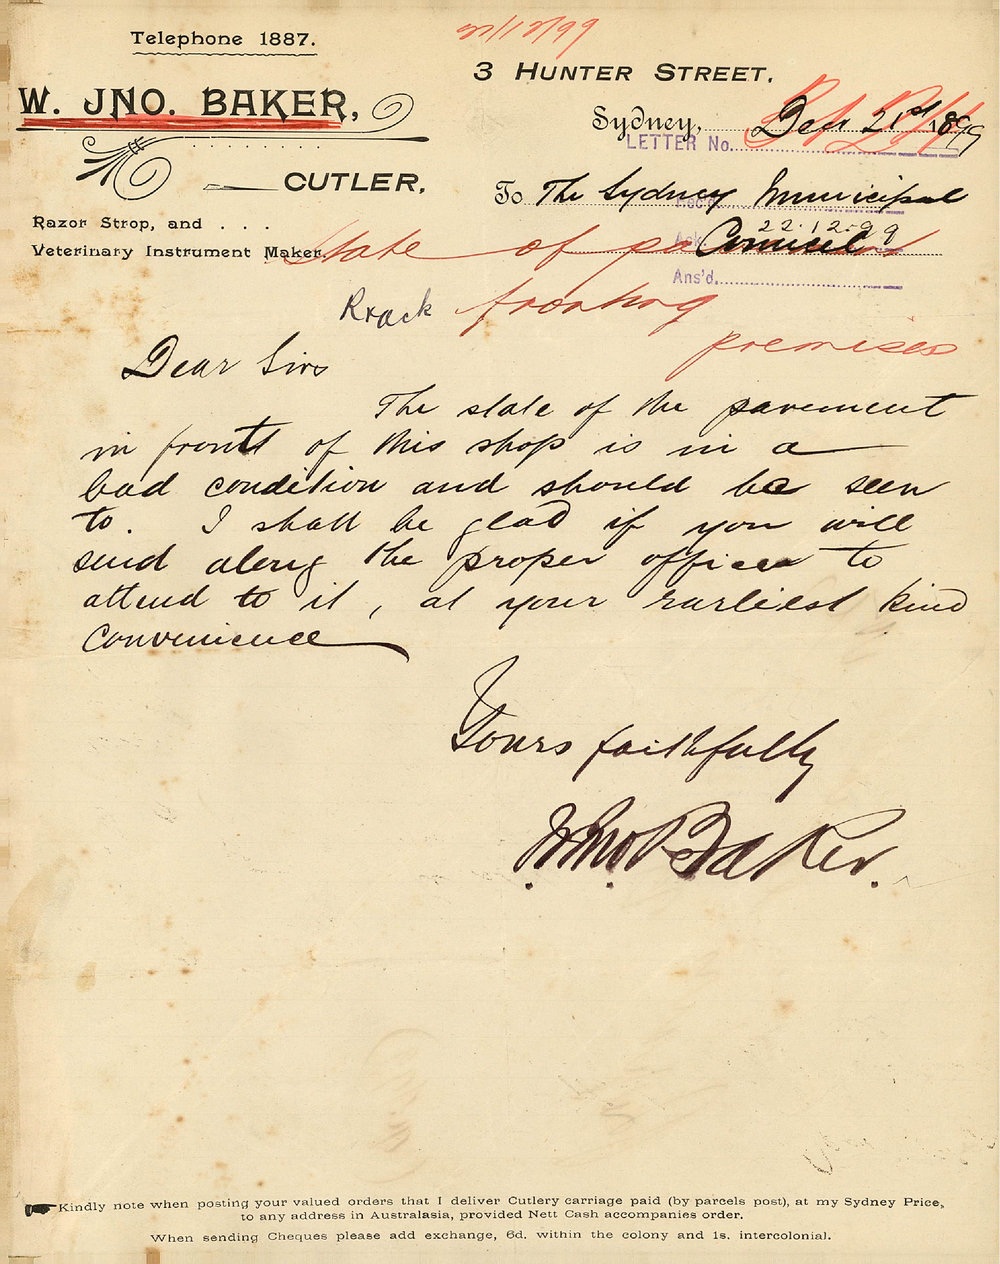 Telephone 1887.
22/12/99
3 HUNTER STREET,
W. JNO. BAKER,
Sydney, Dec 21st 1899
LETTER No.
CUTLER,
To The Sydney Municipal
Rec'd
Razor Strop, and . . . .
Ack. 22.12.99
Council
Veterinary Instrument Maker.
State of
Ans'd.
fronting
premises
Dear Sirs
The state of the pavement
in front of this shop is in a
bad condition and should be seen
to. I shall be glad if you will
send along the proper officer to
attend to it, at your earliest kind
convenience
Yours faithfully
W. Jno. Baker.
Kindly note when posting your valued orders that I deliver Cutlery carriage paid (by parcels post), at my Sydney Price,
to any address in Australasia, provided Nett Cash accompanies order.
When sending Cheques please add exchange, 6d. within the colony and 1s. intercolonial.